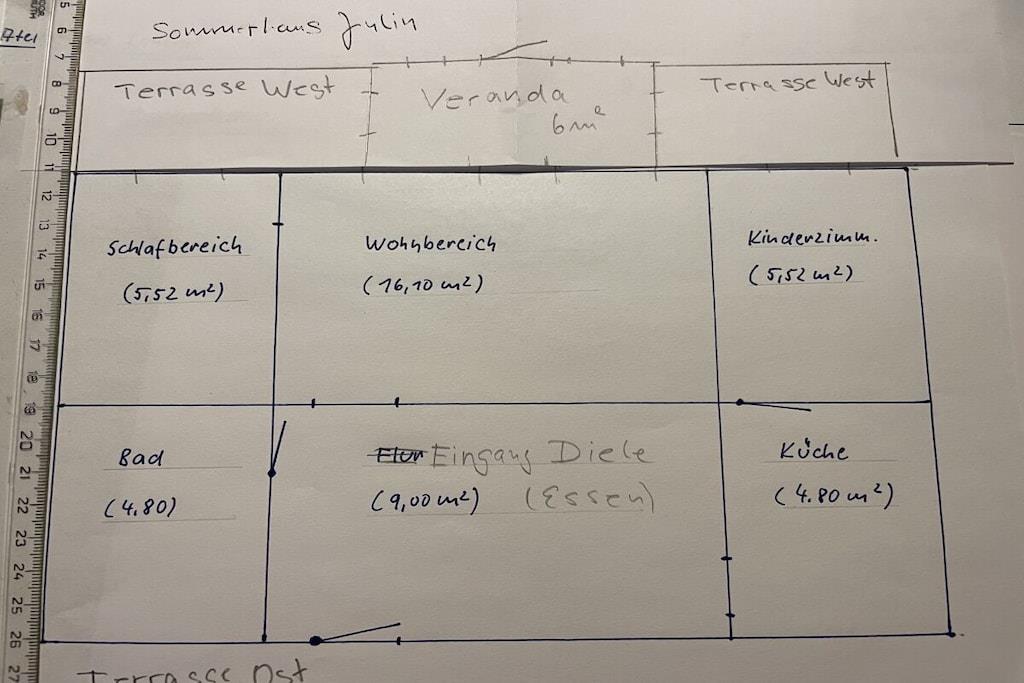 Sommerhaus Julin
Terrasse West
Veranda
6m²
Terrasse West
Schlafbereich
(5,52 m²)
Wohnbereich
(16,10 m²)
Kinderzimm.
(5,52 m²)
Bad
(4,80)
Flur Eingang Diele
(9,00 m²) (Essen)
Küche
(4.80 m²)
Terrasse Ost
5
6
7
8
9
10
11
12
13
14
15
16
17
18
19
20
21
22
23
24
25
26
27